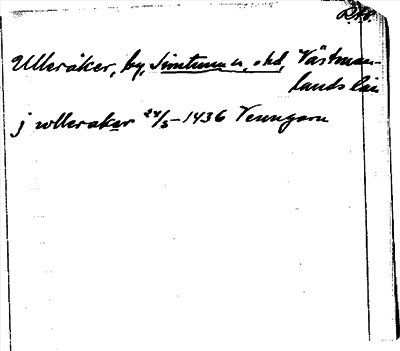 Ulleråker, by, Simtuna sn, ohd, Västman-
lands län
j wlleraker 24/5-1436 Venngarn